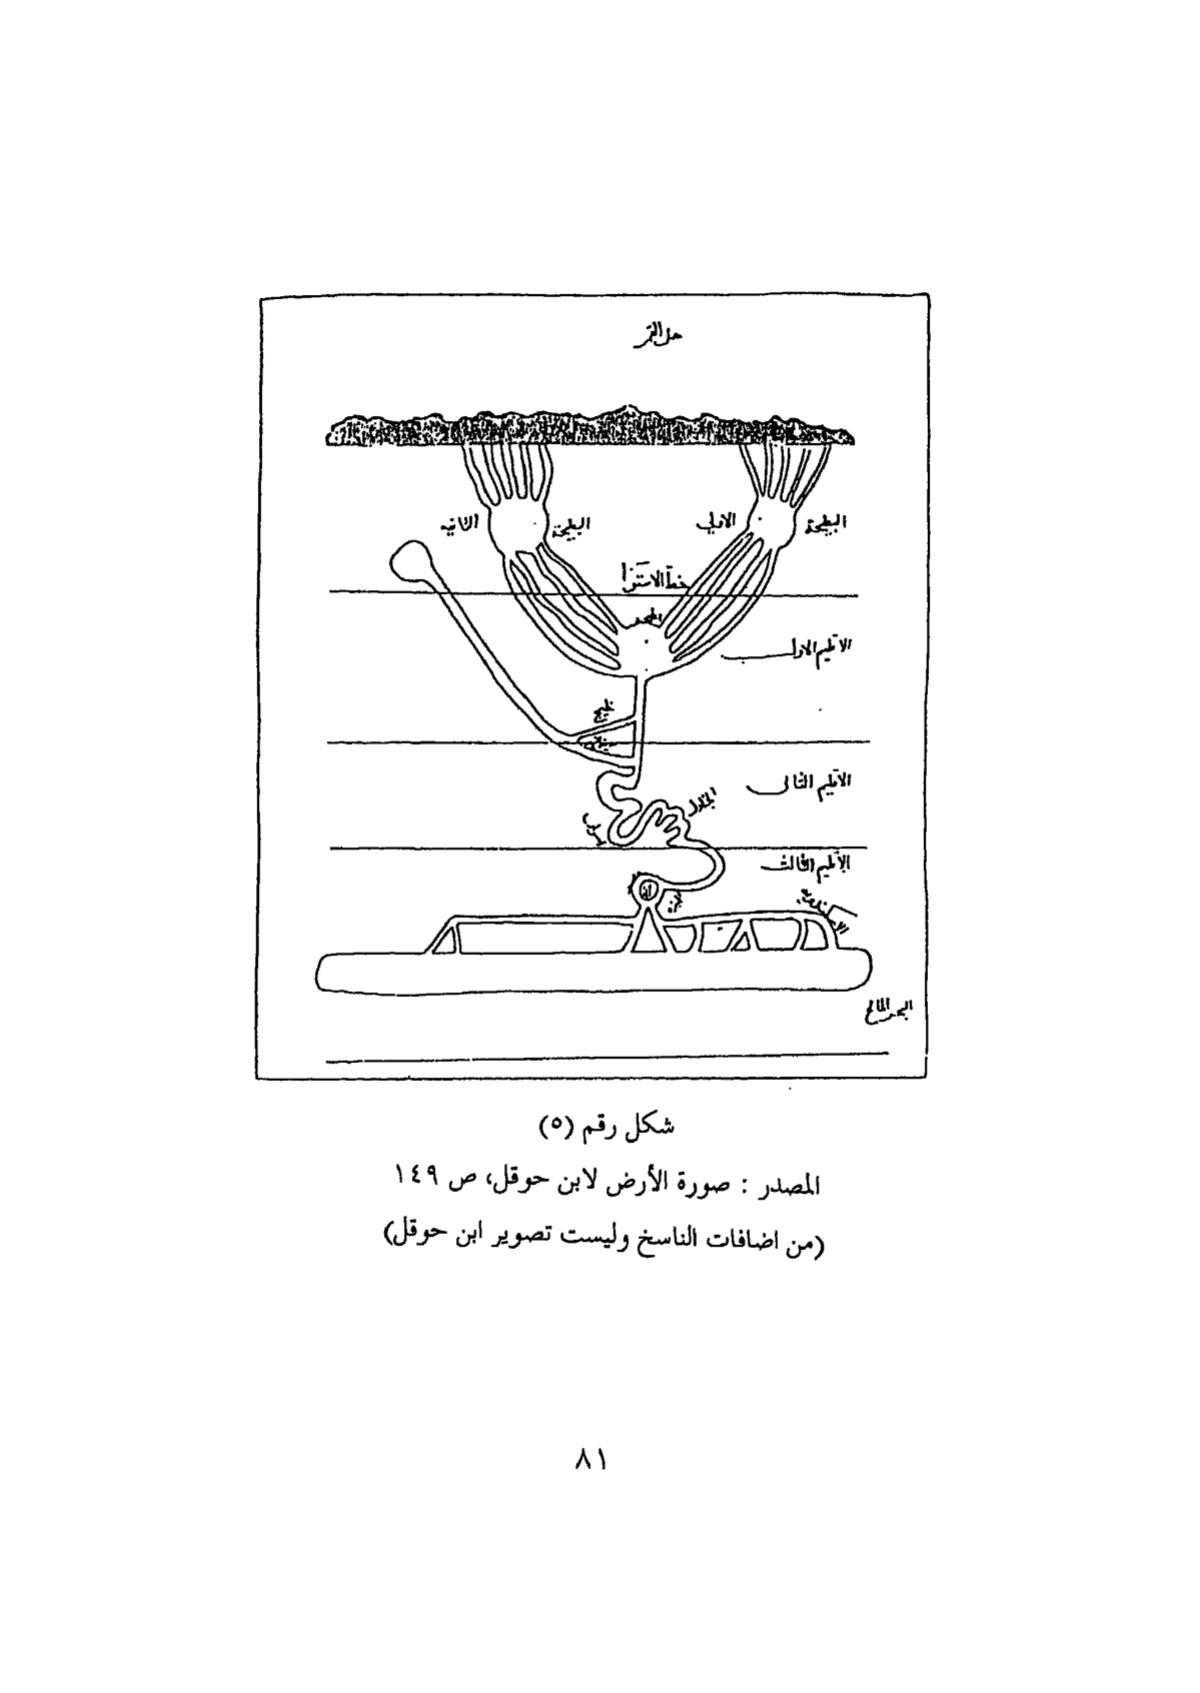 جبل القمر
البطيحة الاولى
البطيحة الثانيه
خط الاستوا
الاقليم الاول
خليج
الاقليم الثانى
الجنادل
الاقليم الثالث
البحر المالح
شكل رقم (٥)
المصدر : صورة الأرض لابن حوقل، ص ١٤٩
(من اضافات الناسخ وليست تصوير ابن حوقل)
٨١